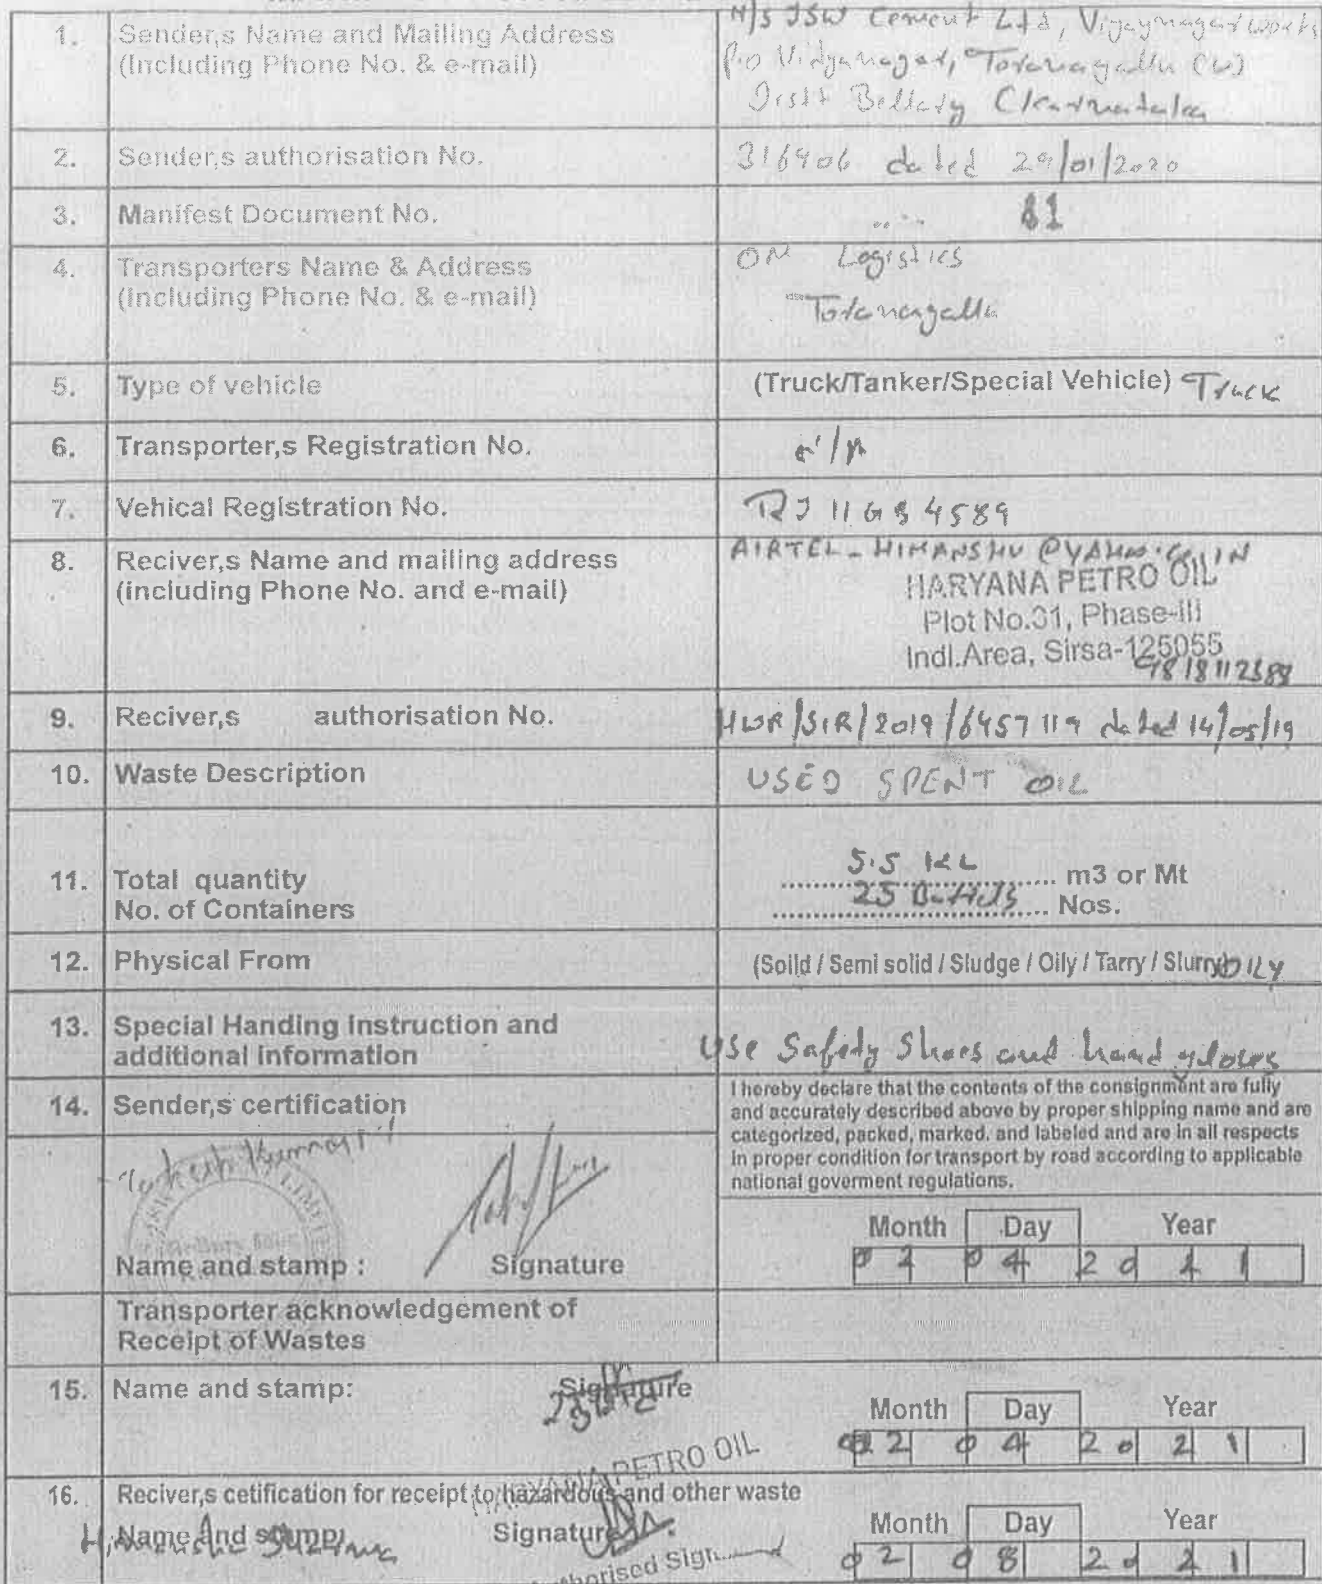 1. Sender,s Name and Mailing Address
(Including Phone No. & e-mail)
M/s JSW Cement Ltd, Vijaynagar works
P.O Vidyanagar, Toranagallu (V)
Distt Bellary (Karnataka
2. Sender,s authorisation No. 316906 dated 29/01/2020
3. Manifest Document No.
4. Transporters Name & Address
(Including Phone No. & e-mail)
OM Logistics
Toranagallu
5. Type of vehicle (Truck/Tanker/Special Vehicle) Truck
6. Transporter,s Registration No.
7. Vehical Registration No. RJ 11 GB 4589
8. Reciver,s Name and mailing address
(including Phone No. and e-mail)
AIRTEL_HIMANSHU @YAHOO.CO.IN
HARYANA PETRO OIL
Plot No.31, Phase-III
Indl.Area, Sirsa-125055
9. Reciver,s authorisation No. HWR/SIR/2019/6457119 dated 14/05/19
10. Waste Description USED SPENT OIL
11. Total quantity 5.5 KL m3 or Mt
No. of Containers 25 Barrels Nos.
12. Physical From (Soild / Semi solid / Sludge / Oily / Tarry / Slurry) OILY
13. Special Handing Instruction and
additional information
Use Safety Shoes and hand gloves
14. Sender,s certification
I hereby declare that the contents of the consignment are fully
and accurately described above by proper shipping name and are
categorized, packed, marked, and labeled and are in all respects
in proper condition for transport by road according to applicable
national goverment regulations.
Name and stamp : Signature
Month Day Year
02 04 2021
Transporter acknowledgement of
Receipt of Wastes
15. Name and stamp: Signature
Month Day Year
02 04 2021
HARYANA PETRO OIL
16. Reciver,s cetification for receipt to hazardous and other waste
Name and stamp: Signature
Authorised Sign
Month Day Year
02 08 2021